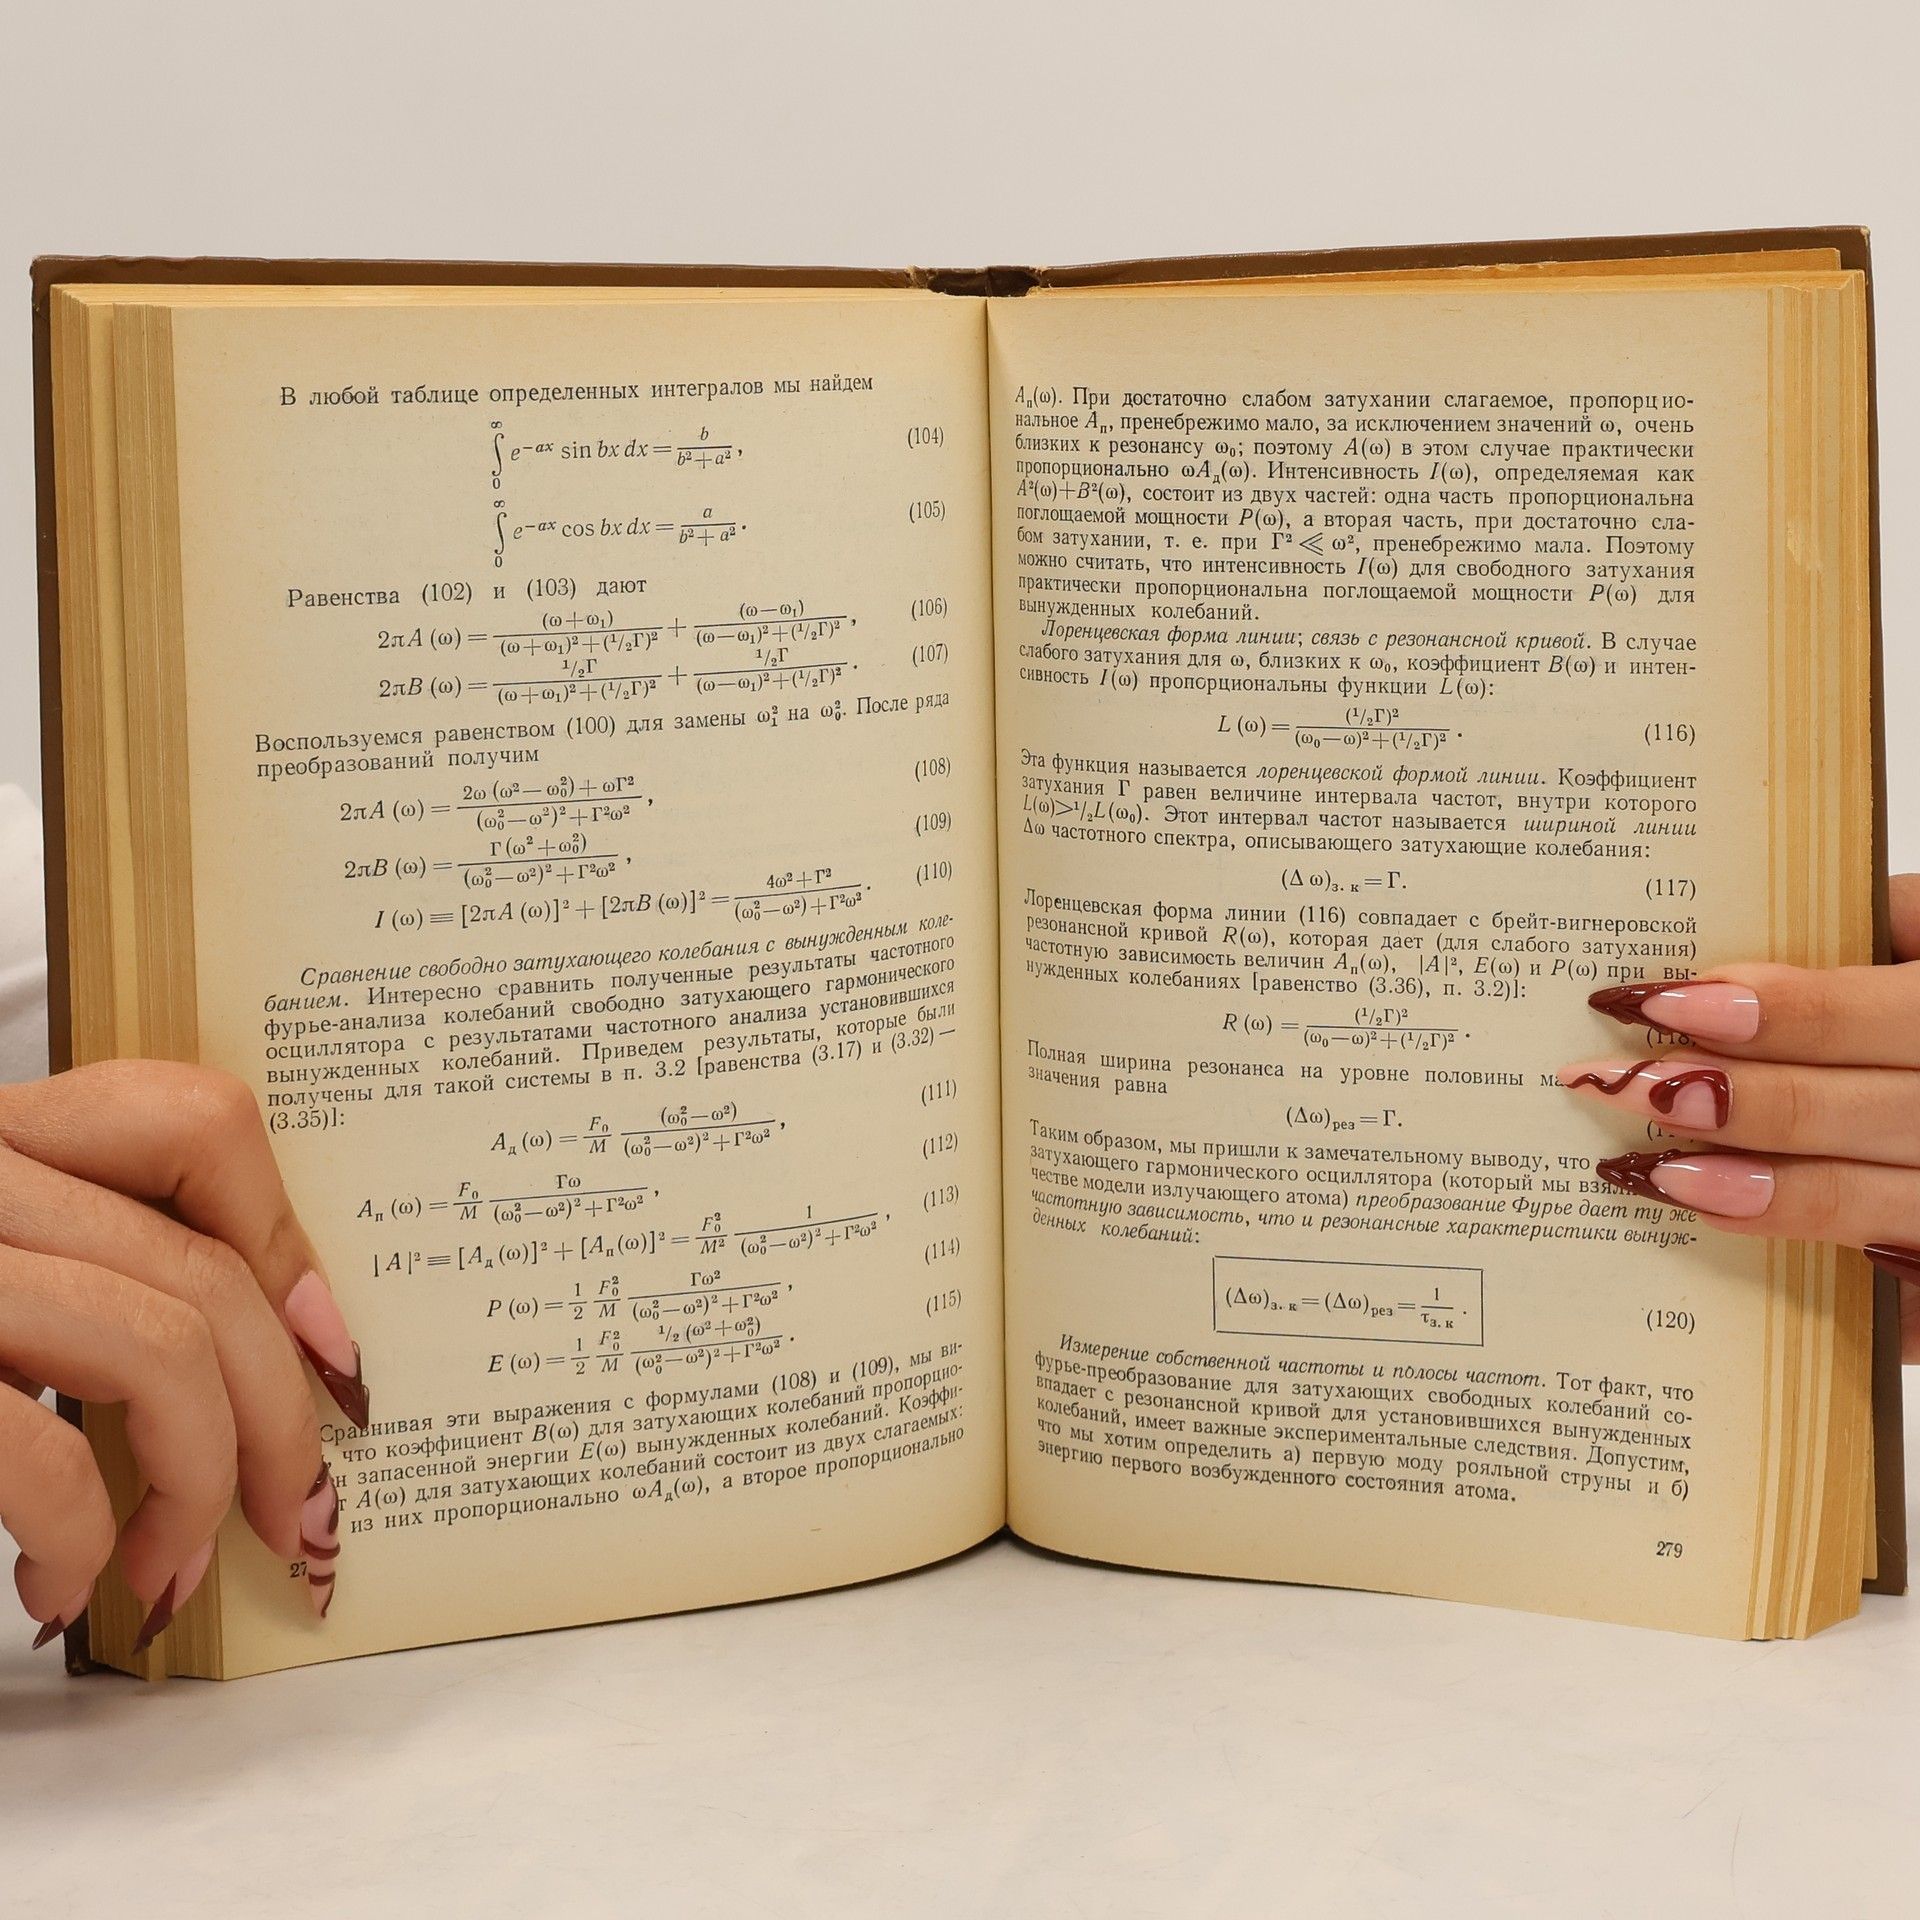 В любой таблице определенных интегралов мы найдем
∫₀^∞ e^{−ax} sin bx dx = b/(b²+a²), (104)
∫₀^∞ e^{−ax} cos bx dx = a/(b²+a²). (105)
Равенства (102) и (103) дают
2πA (ω) = (ω+ω₁)/((ω+ω₁)²+(¹/₂Γ)²) + (ω−ω₁)/((ω−ω₁)²+(¹/₂Γ)²), (106)
2πB (ω) = ¹/₂Γ/((ω+ω₁)²+(¹/₂Γ)²) + ¹/₂Γ/((ω−ω₁)²+(¹/₂Γ)²). (107)
Воспользуемся равенством (100) для замены ω₁² на ω₀². После ряда
преобразований получим
2πA (ω) = (2ω (ω²−ω₀²)+ωΓ²)/((ω₀²−ω²)²+Γ²ω²), (108)
2πB (ω) = Γ (ω²+ω₀²)/((ω₀²−ω²)²+Γ²ω²), (109)
I (ω) ≡ [2πA (ω)]² + [2πB (ω)]² = (4ω²+Γ²)/((ω₀²−ω²)+Γ²ω²). (110)
Сравнение свободно затухающего колебания с вынужденным коле-
банием. Интересно сравнить полученные результаты частотного
фурье-анализа колебаний свободно затухающего гармонического
осциллятора с результатами частотного анализа установившихся
вынужденных колебаний. Приведем результаты, которые были
получены для такой системы в п. 3.2 [равенства (3.17) и (3.32) —
(3.35)]:
Aд (ω) = F₀/M (ω₀²−ω²)/((ω₀²−ω²)²+Γ²ω²), (111)
Aп (ω) = F₀/M Γω/((ω₀²−ω²)²+Γ²ω²), (112)
| A |² ≡ [Aд (ω)]² + [Aп (ω)]² = F₀²/M² 1/((ω₀²−ω²)²+Γ²ω²), (113)
P (ω) = 1/2 F₀²/M Γω²/((ω₀²−ω²)²+Γ²ω²), (114)
E (ω) = 1/2 F₀²/M ¹/₂ (ω²+ω₀²)/((ω₀²−ω²)²+Γ²ω²). (115)
Сравнивая эти выражения с формулами (108) и (109), мы ви-
что коэффициент B(ω) для затухающих колебаний пропорцио-
запасенной энергии E(ω) вынужденных колебаний. Коэффи-
A(ω) для затухающих колебаний состоит из двух слагаемых:
из них пропорционально ωAд(ω), а второе пропорционально
Aп(ω). При достаточно слабом затухании слагаемое, пропорцио-
нальное Aп, пренебрежимо мало, за исключением значений ω, очень
близких к резонансу ω₀; поэтому A(ω) в этом случае практически
пропорционально ωAд(ω). Интенсивность I(ω), определяемая как
A²(ω)+B²(ω), состоит из двух частей: одна часть пропорциональна
поглощаемой мощности P(ω), а вторая часть, при достаточно сла-
бом затухании, т. е. при Γ² ≪ ω², пренебрежимо мала. Поэтому
можно считать, что интенсивность I(ω) для свободного затухания
практически пропорциональна поглощаемой мощности P(ω) для
вынужденных колебаний.
Лоренцевская форма линии; связь с резонансной кривой. В случае
слабого затухания для ω, близких к ω₀, коэффициент B(ω) и интен-
сивность I(ω) пропорциональны функции L(ω):
L (ω) = (¹/₂Γ)²/((ω₀−ω)²+(¹/₂Γ)²). (116)
Эта функция называется лоренцевской формой линии. Коэффициент
затухания Γ равен величине интервала частот, внутри которого
L(ω)>¹/₂L(ω₀). Этот интервал частот называется шириной линии
Δω частотного спектра, описывающего затухающие колебания:
(Δ ω)з. к = Γ. (117)
Лоренцевская форма линии (116) совпадает с брейт-вигнеровской
резонансной кривой R(ω), которая дает (для слабого затухания)
частотную зависимость величин Aп(ω), |A|², E(ω) и P(ω) при вы-
нужденных колебаниях [равенство (3.36), п. 3.2)]:
R (ω) = (¹/₂Γ)²/((ω₀−ω)²+(¹/₂Γ)²). (118)
Полная ширина резонанса на уровне половины
значения равна
(Δω)рез = Γ.
Таким образом, мы пришли к замечательному выводу, что
затухающего гармонического осциллятора (который мы
честве модели излучающего атома) преобразование Фурье дает ту же
частотную зависимость, что и резонансные характеристики вынуж-
денных колебаний:
(Δω)з. к = (Δω)рез = 1/τз. к. (120)
Измерение собственной частоты и полосы частот. Тот факт, что
фурье-преобразование для затухающих свободных колебаний со-
впадает с резонансной кривой для установившихся вынужденных
колебаний, имеет важные экспериментальные следствия. Допустим,
что мы хотим определить а) первую моду рояльной струны и б)
энергию первого возбужденного состояния атома.
279